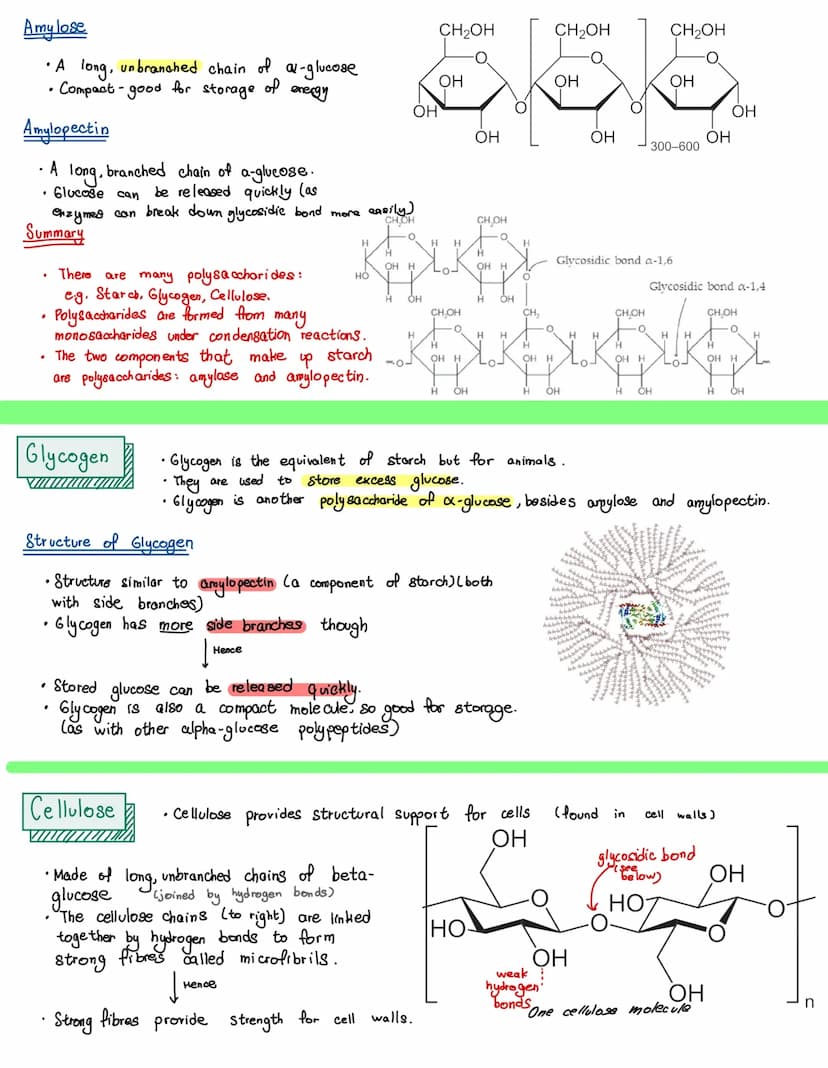 Amylose
• A long, unbranched chain of α-glucose
• Compact - good for storage of energy
Amylopectin
• A long, branched chain of α-glucose.
• Glucose can be released quickly (as
enzymes can break down glycosidic bond more easily)
Summary
• There are many polysaccharides:
e.g. Starch, Glycogen, Cellulose.
• Polysaccharides are formed from many
monosaccharides under condensation reactions.
• The two components that make up starch
are polysaccharides: amylose and amylopectin.
CH₂OH CH₂OH CH₂OH
O O O
OH OH OH
OH O O OH
OH OH OH
300–600
CH₂OH CH₂OH
H O H H O H
H H
HO OH H O OH H O
H OH H OH
Glycosidic bond α-1,6
Glycosidic bond α-1,4
CH₂OH CH₂ CH₂OH CH₂OH
H O H H O H H O H H O H
H H H H
O OH H O OH H O OH H O OH H O
H OH H OH H OH H OH
Glycogen
• Glycogen is the equivalent of starch but for animals.
• They are used to store excess glucose.
• Glycogen is another polysaccharide of α-glucose, besides amylose and amylopectin.
Structure of Glycogen
• Structure similar to amylopectin (a component of starch)(both
with side branches)
• Glycogen has more side branches though
Hence
• Stored glucose can be released quickly.
• Glycogen is also a compact molecule, so good for storage.
(as with other alpha-glucose polypeptides)
Cellulose
• Cellulose provides structural support for cells (found in cell walls)
• Made of long, unbranched chains of beta-
glucose (joined by hydrogen bonds)
• The cellulose chains (to right) are linked
together by hydrogen bonds to form
strong fibres called microfibrils.
Hence
• Strong fibres provide strength for cell walls.
OH
glycosidic bond
(see
below)
OH
O HO O
HO O O
OH
weak
hydrogen
bonds
OH
n
One cellulose molecule